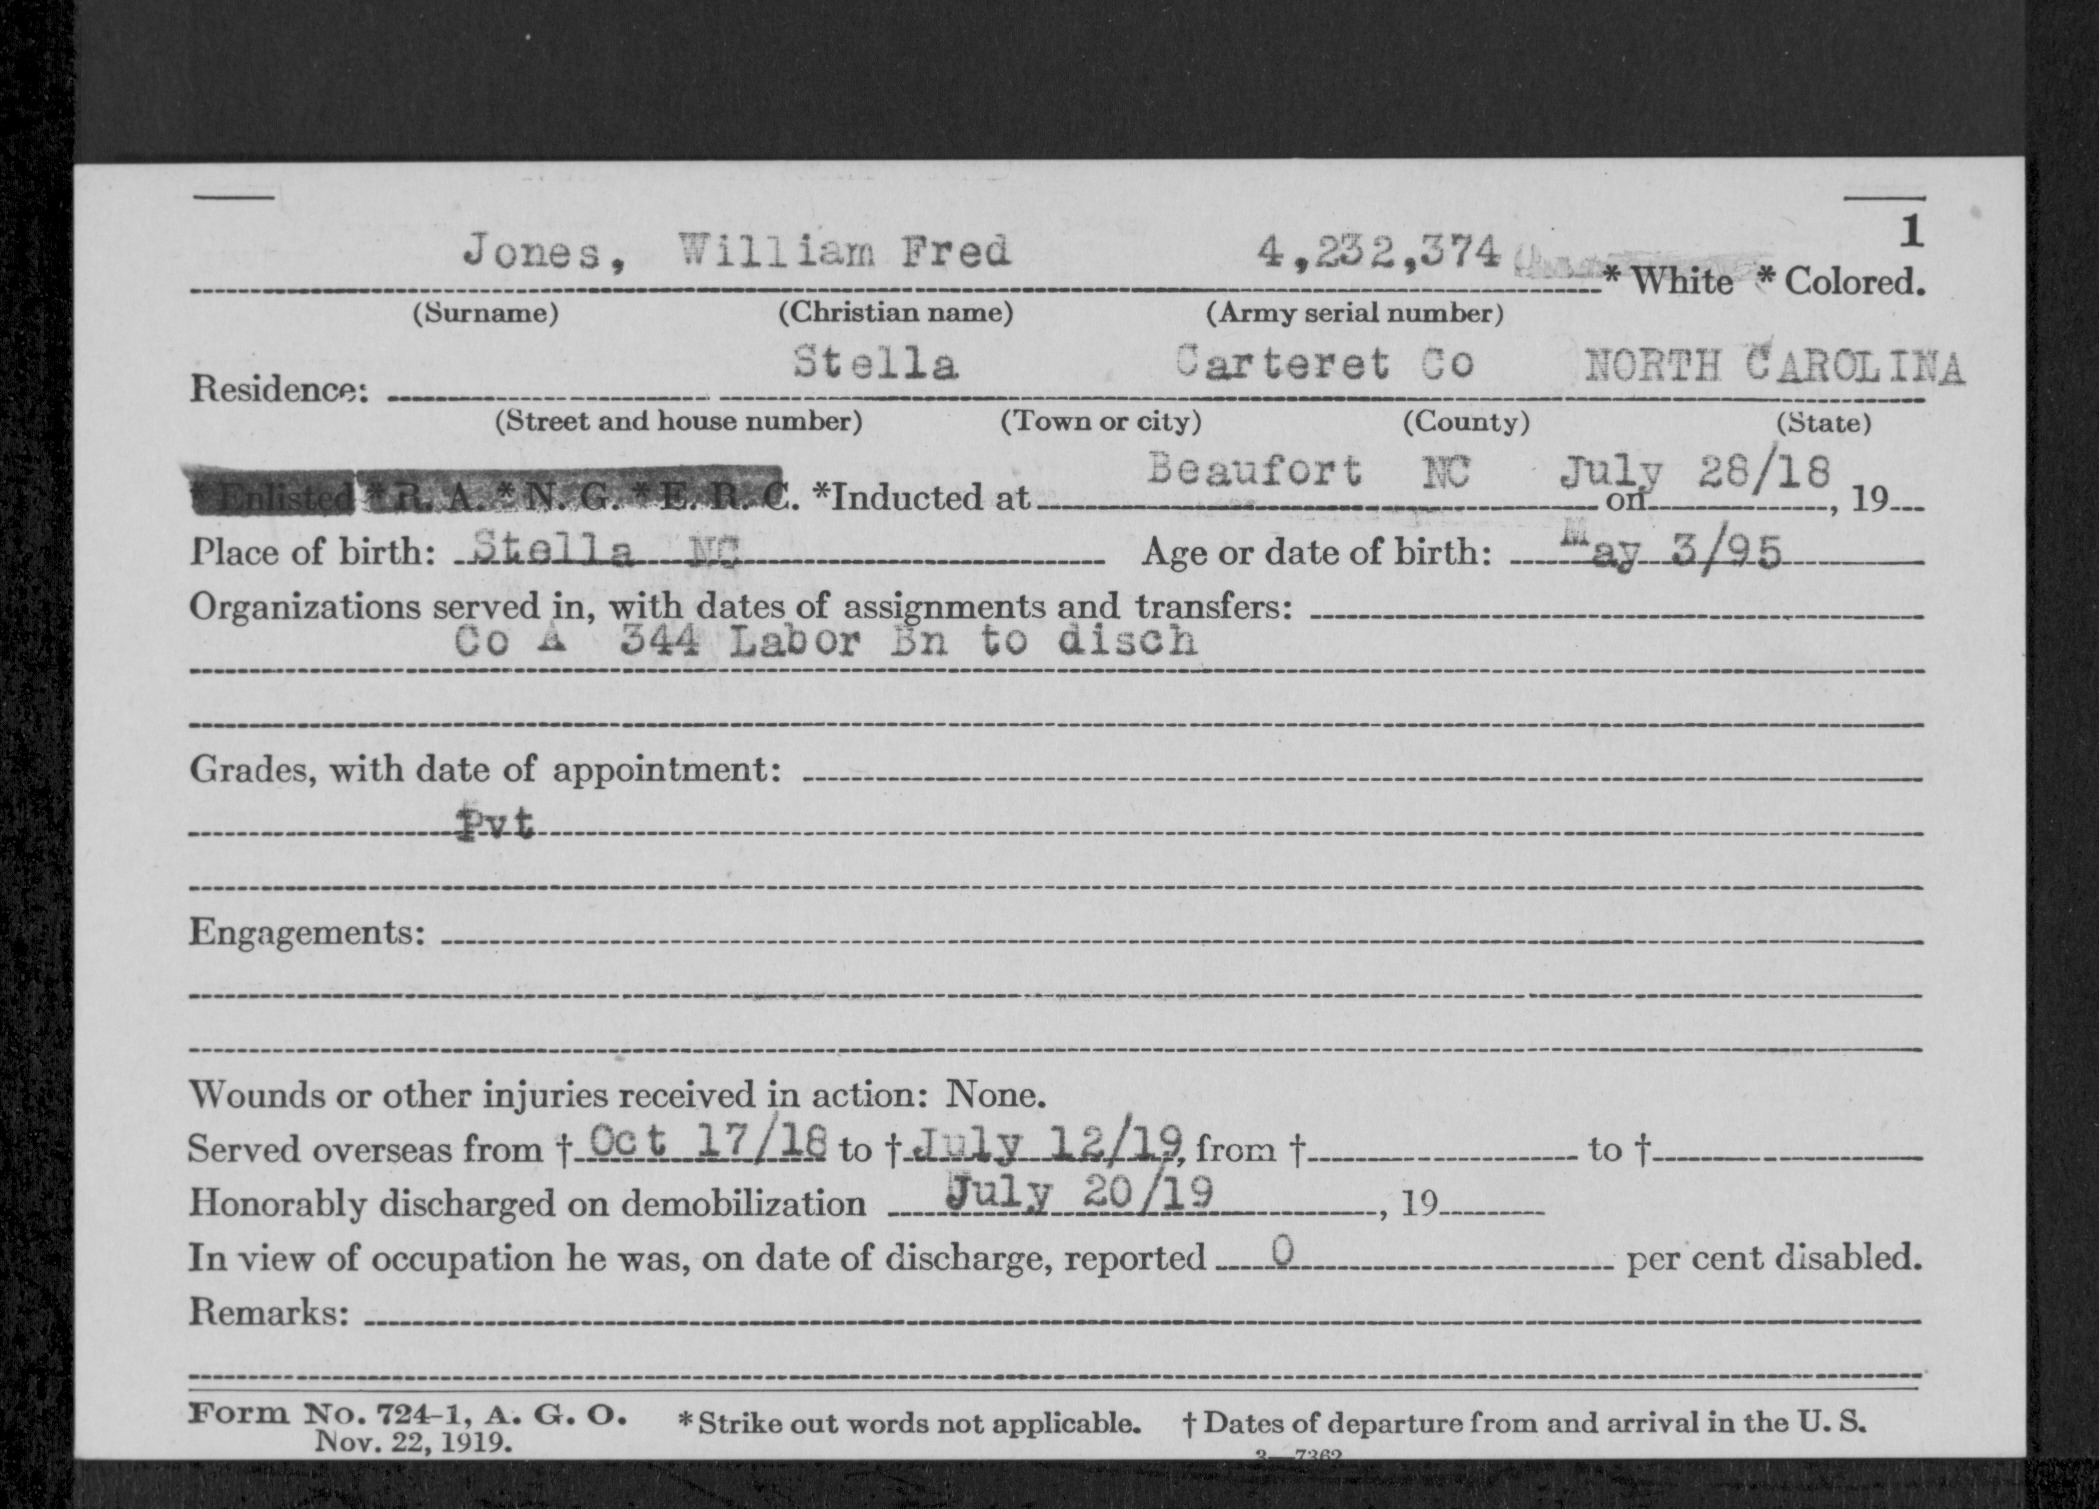 1
Jones, William Fred 4,232,374 * White * Colored.
(Surname) (Christian name) (Army serial number)
Stella Carteret Co NORTH CAROLINA
Residence:
(Street and house number) (Town or city) (County) (State)
* Enlisted * R. A. * N. G. * E. R. C. *Inducted at Beaufort NC on July 28/18, 19
Place of birth: Stella NC Age or date of birth: May 3/95
Organizations served in, with dates of assignments and transfers:
Co A 344 Labor Bn to disch
Grades, with date of appointment:
Pvt
Engagements:
Wounds or other injuries received in action: None.
Served overseas from † Oct 17/18 to † July 12/19, from † to †
Honorably discharged on demobilization July 20/19, 19
In view of occupation he was, on date of discharge, reported 0 per cent disabled.
Remarks:
Form No. 724-1, A. G. O. * Strike out words not applicable. † Dates of departure from and arrival in the U. S.
Nov. 22, 1919.
3—7362